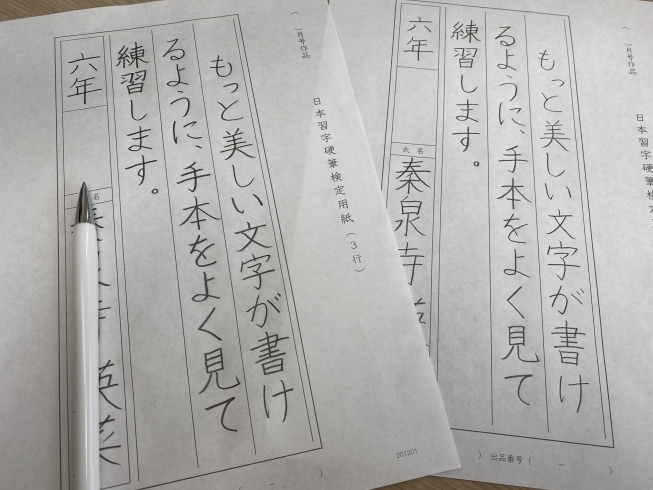 （　）月号作品
日本習字硬筆検定用紙（３行）
もっと美しい文字が書け
るように、手本をよく見て
練習します。
六年
名
英菜
（　－　）
201201
（　）月号作品
日本習字硬筆検
もっと美しい文字が書け
るように、手本をよく見て
練習します。
六年
氏名
秦泉寺
）出品番号（　－　）